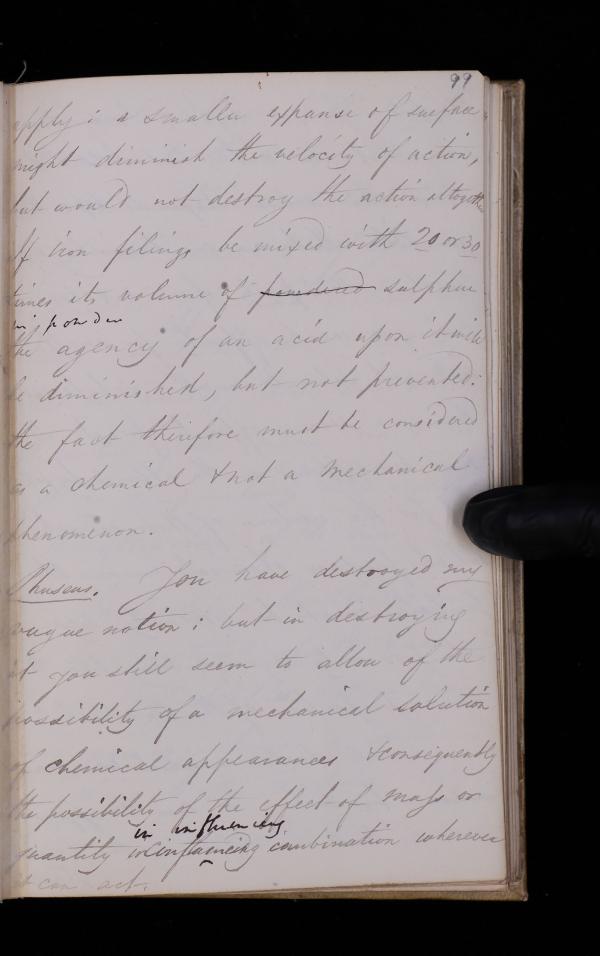 99
apply; a smaller expanse of surface
might diminish the velocity of action,
but would not destroy the action altogether
If iron filings be mixed with 20 or 30
times its volume of powdered sulphur
in powder
the agency of an acid upon it will
be diminished, but not prevented:
the fact therefore must be considered
as a chemical & not a mechanical
phenomenon.
You have destroyed my
vague notion; but in destroying
it you still seem to allow of the
possibility of a mechanical solution
of chemical appearances & consequently
the possibility of the effect of mass or
in influencing
quantity influencing combination wherever
it can act.